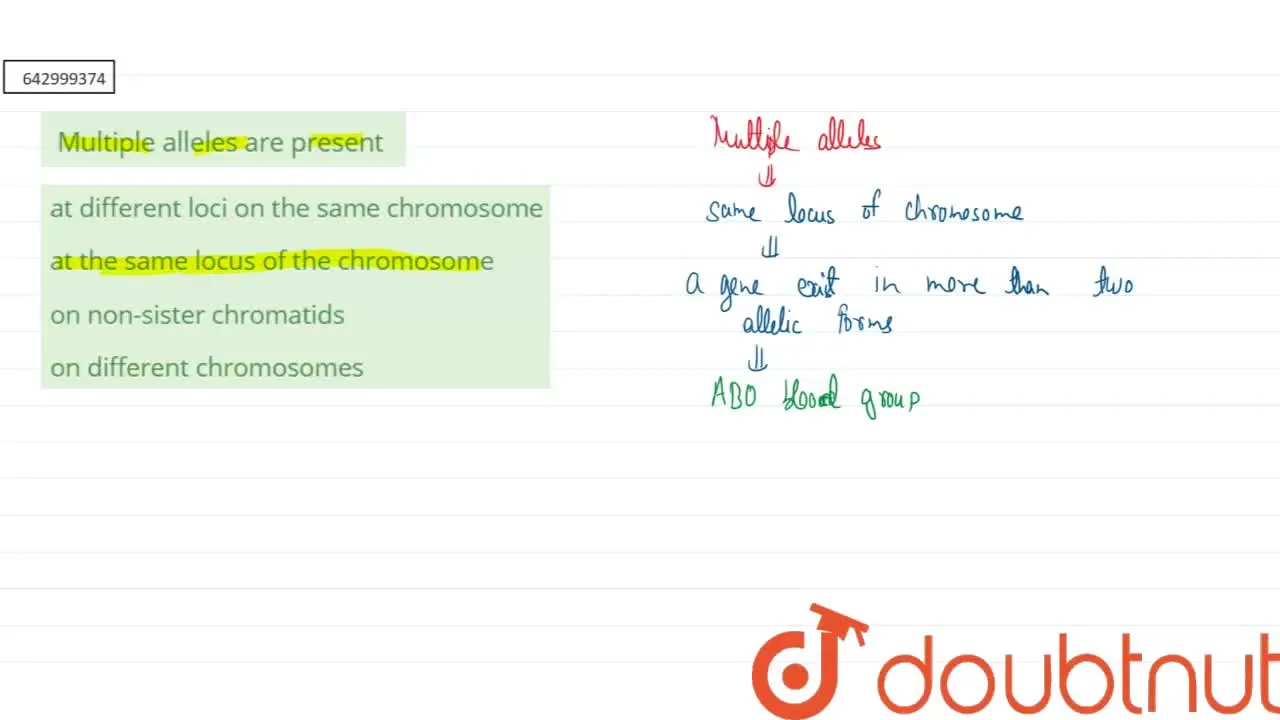 642999374
Multiple alleles are present
at different loci on the same chromosome
at the same locus of the chromosome
on non-sister chromatids
on different chromosomes
Multiple alleles
⇓
same locus of chromosome
⇓
a gene exist in more than two
allelic forms
⇓
ABO blood group
doubtnut